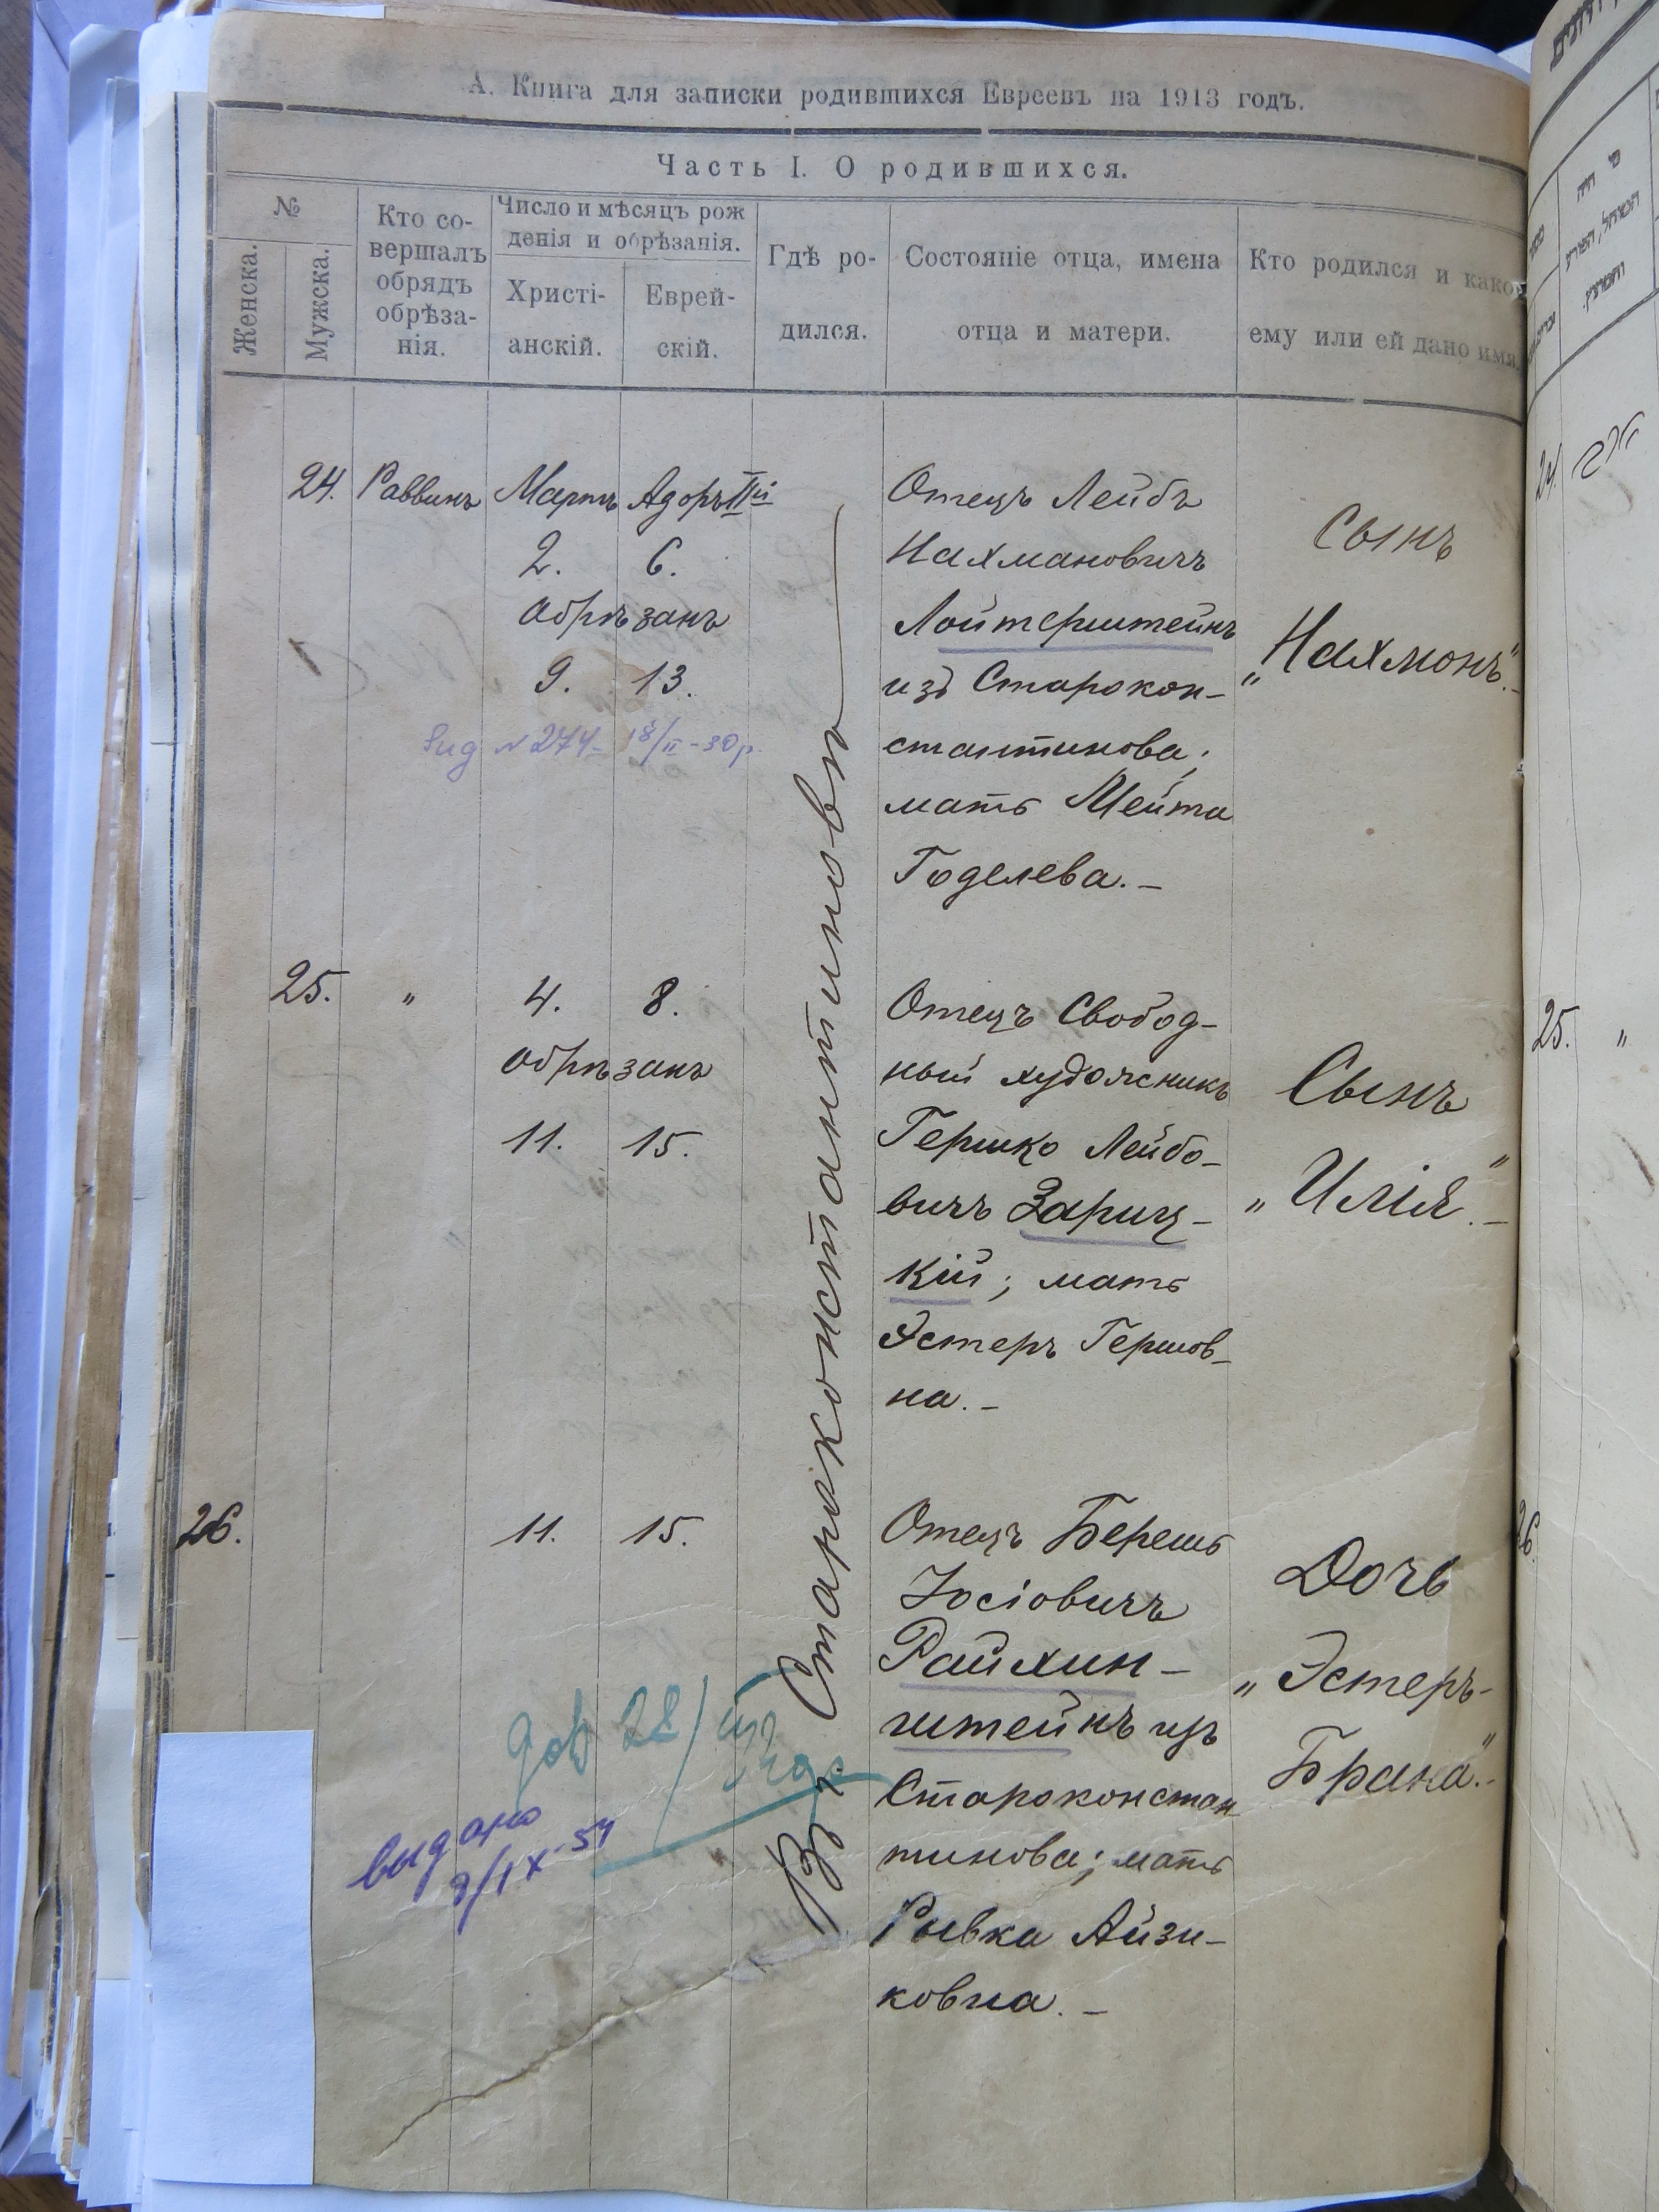 А. Книга для записки родившихся Евреевъ на 1913 годъ.
Часть I. О родившихся.
№
Женска.
Мужска.
Кто со-
вершалъ
обрядъ
обрѣза-
нія.
Число и мѣсяцъ рож
денія и обрѣзанія.
Христі-
анскій.
Еврей-
скій.
Гдѣ ро-
дился.
Состояніе отца, имена
отца и матери.
Кто родился и какое
ему или ей дано имя.
24. Раввинъ Мартъ Адоръ IIй
2. 6.
Обрѣзанъ
9. 13.
№ 274 - 18/II - 30 р.
Отецъ Лейбъ
Нахмановичъ
Лойтерштейнъ
изъ Старокон-
стантинова;
мать Мейта
Годелева. -
Сынъ
„Нахмонъ". -
Въ Староконстантиновѣ
25. „ 4. 8.
Обрѣзанъ
11. 15.
Отецъ Свобод-
ный художникъ
Гершко Лейбо-
вичъ Зариц-
кій; мать
Эстеръ Гершов-
на. -
Сынъ
„Илія". -
26. 11. 15.
Отецъ Берешъ
Іосіовичъ
Райхин-
штейнъ изъ
Староконстан
тинова; мать
Ривка Айзи-
ковна. -
Дочь
„Эстеръ-
Брана". -
выдано
9/IX-54
24.
25. „
26.